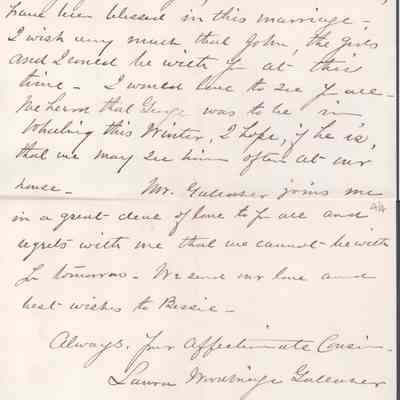 have been blessed in this marriage -
I wish very much that John, the girls
and I could be with you at this
time - I would love to see you all -
We heard that George was to be in
Wheeling this Winter, I hope, if he is,
that we may see him often at our
house - Mr. Gallaher joins me
in a great deal of love to you all and
regrets with me that we cannot be with
you tomorrow - We send our love and
best wishes to Bessie -
Always, your affectionate Cousin -
Laura Gallaher